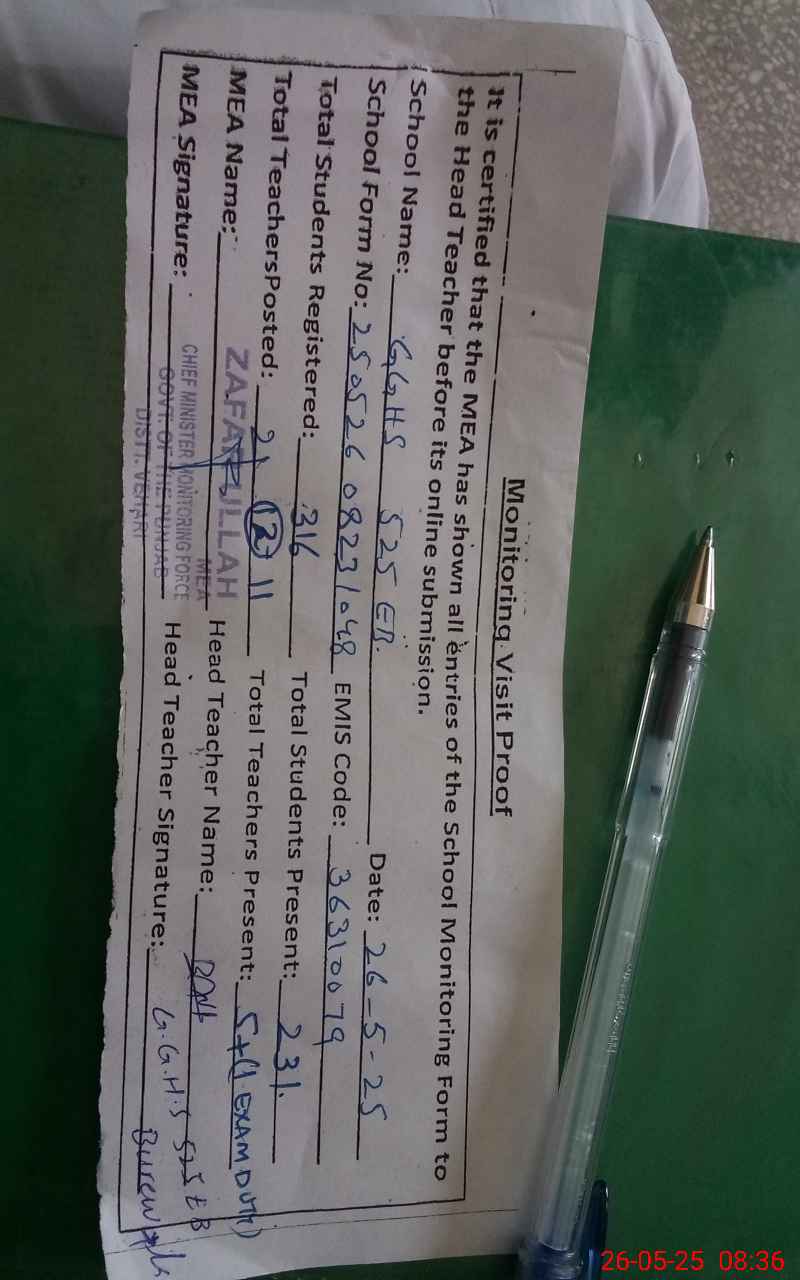 Monitoring Visit Proof
It is certified that the MEA has shown all entries of the School Monitoring Form to
the Head Teacher before its online submission.
School Name: GGHS 525 EB. Date: 26-5-25
School Form No: 250526 08231048 EMIS Code: 36310079
Total Students Registered: 316 Total Students Present: 231.
Total TeachersPosted: 11 Total Teachers Present: 5+(1 EXAM DUTY)
MEA Name: ZAFARULLAH Head Teacher Name:
MEA
MEA Signature: Head Teacher Signature:
CHIEF MINISTER MONITORING FORCE
GOVT. OF THE PUNJAB
DISTT. VEHARI
G.G.H.S 525 EB
Burewala
26-05-25 08:36